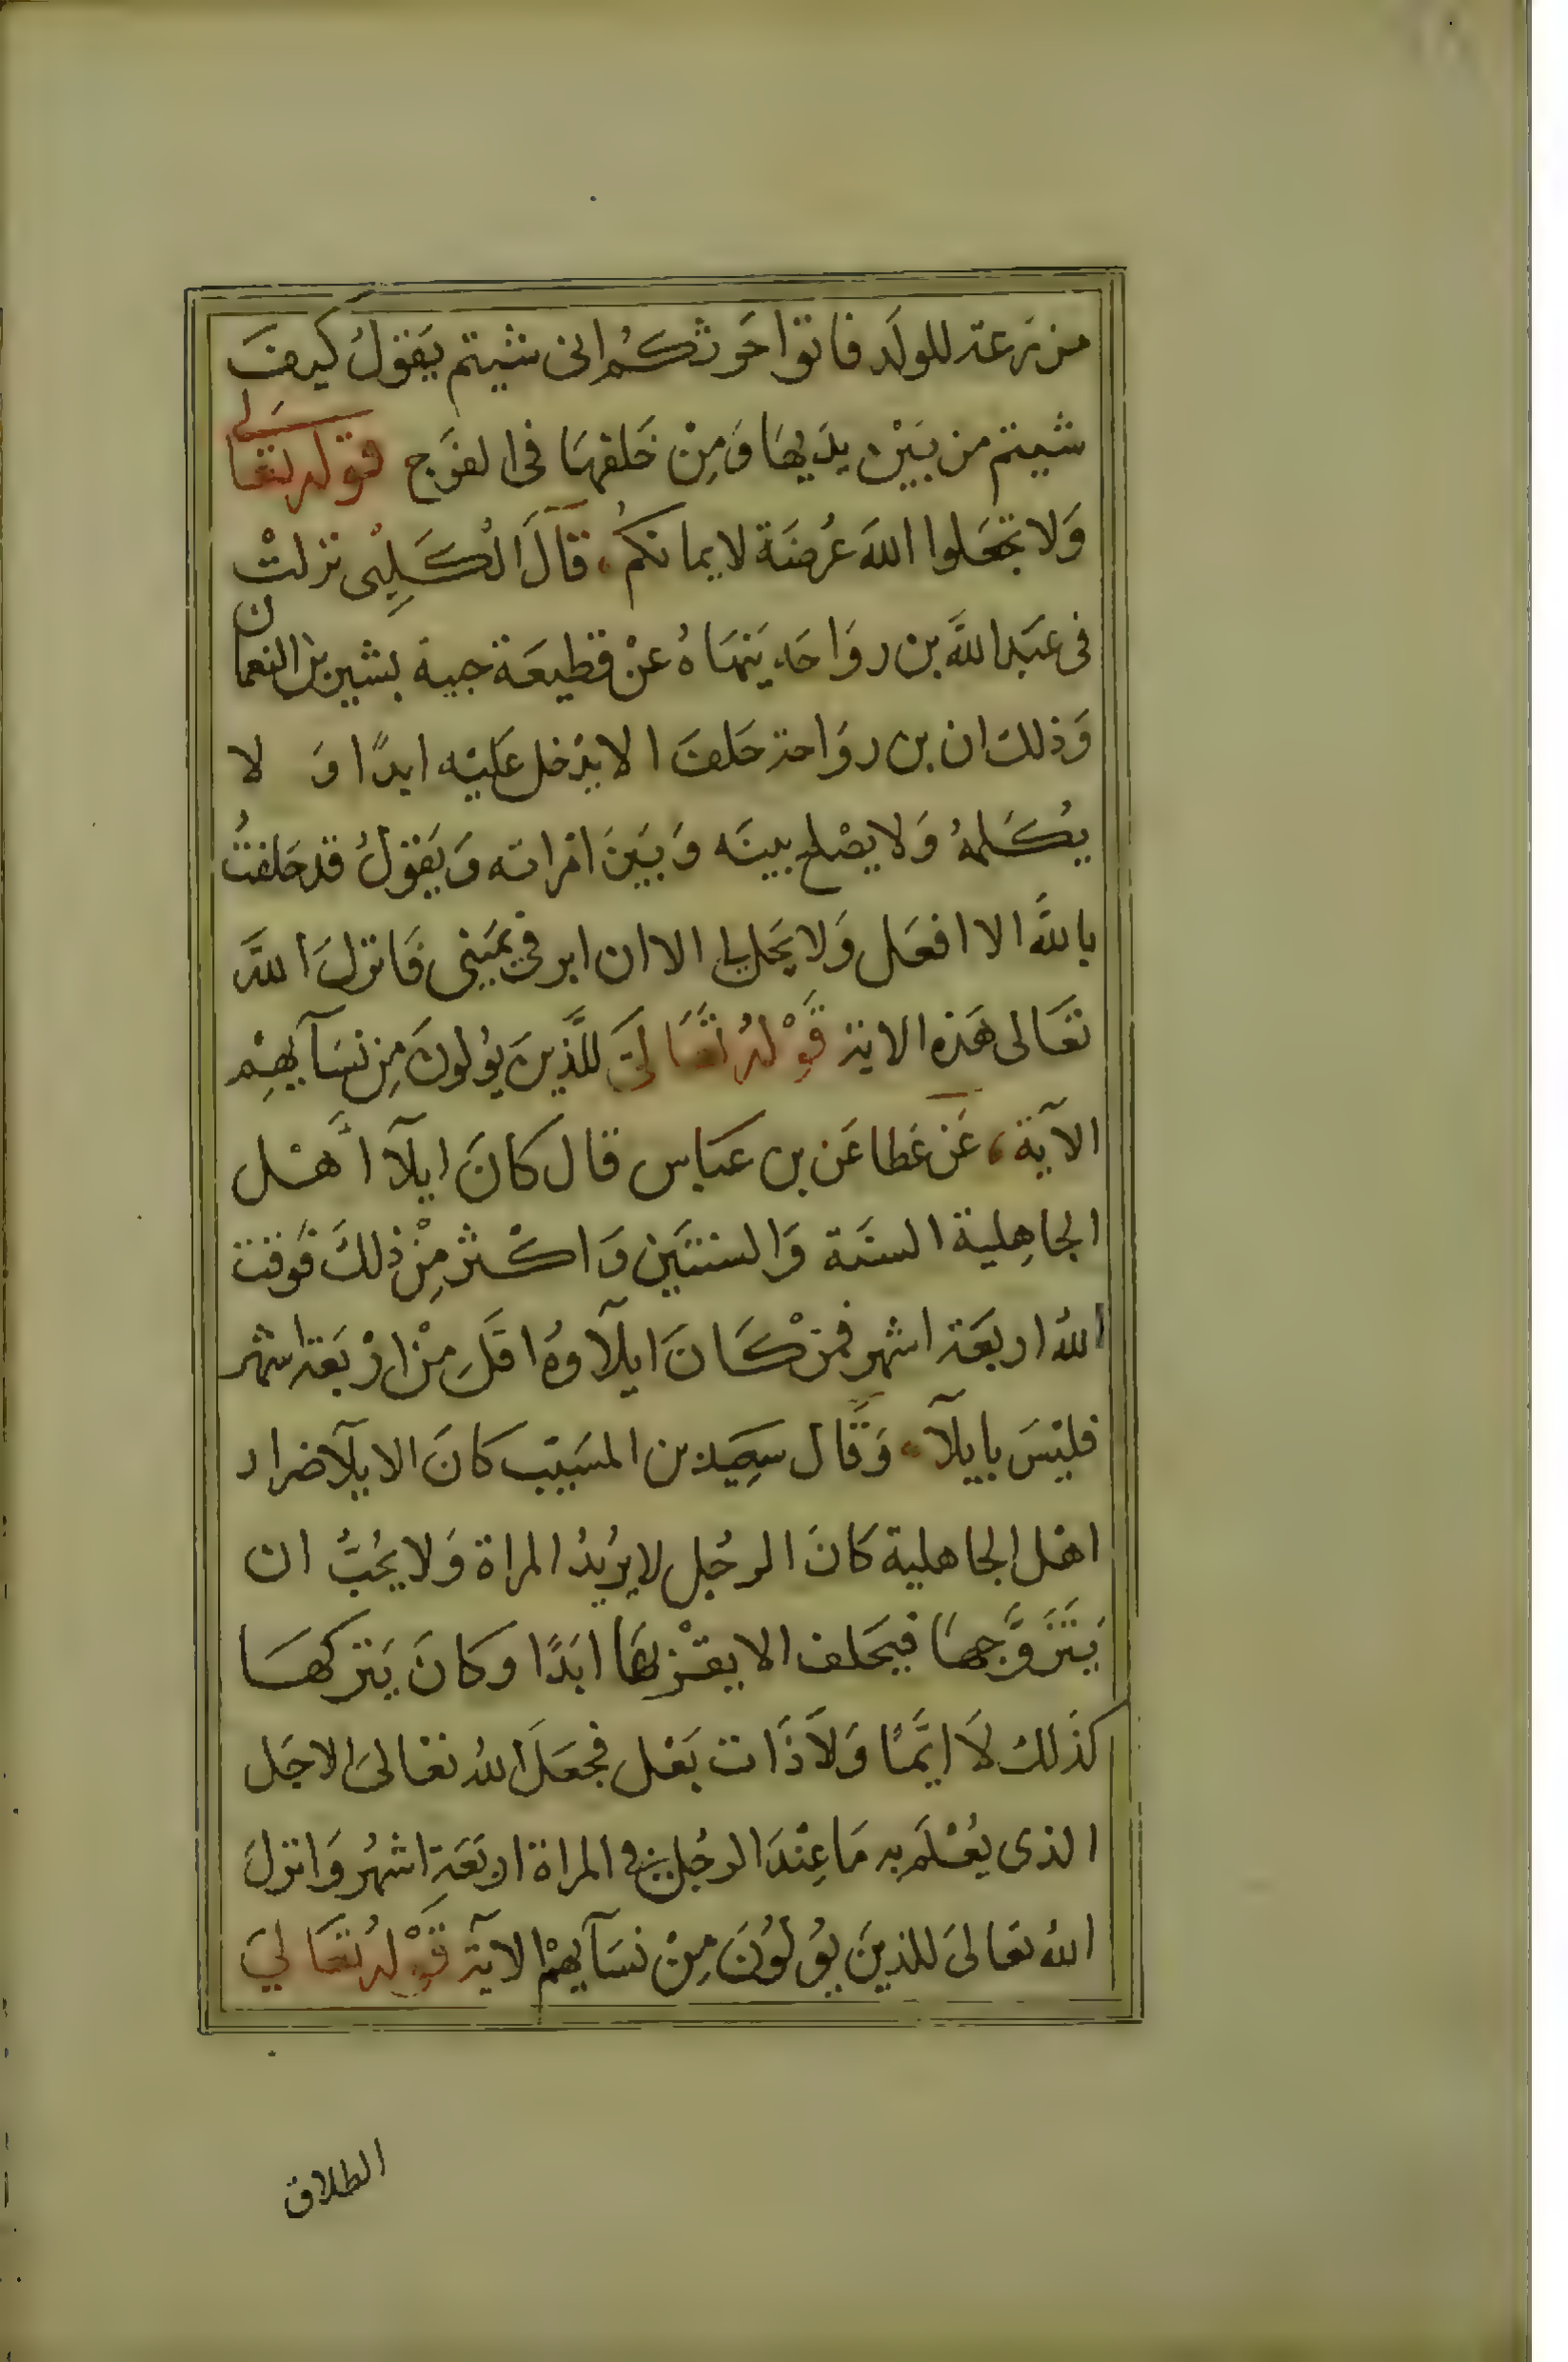 مزرعة للولد فاتوا حَرثكُم انى شيتم يَقولُ كيفَ
شيتم من بَيْن يدَيهَا وَمِنْ خَلفهَا فى الفَرج قوله تعالى
وَلا تجعَلوا اللهَ عُرضَة لايمانكُم، قَالَ الْكَلِبْى نزلتْ
فى عَبَد اللَّه بن روَاحَه يَنهَاهُ عَنْ قطيعَة جيبة بشير بن النعمان
وَذلك ان بن روَاحة حَلفَ الا يدْخل عَليْه ابدًا وَ لا
يُكَلمهُ وَلا يصْلح بينَه وَبَيَنَ امْراته وَيَقولُ قد حَلفتُ
باللَّه الا افعَل وَلا يَحل لى الا ان ابر فى يَميَنِى فَانزلَ اللَّه
تعَالى هَذه الاية قَوْلهُ تَعَالىَ للَّذِينَ يؤلونَ مِن نسَآيهِمْ
الآية، عَن عَطا عَن بن عَباس قال كانَ ايلآ أهْل
الجاهِلية السنَة وَالسنتَين وَاكْثر مِنْ ذلكَ فَوقت
اللهُ اربَعَة اشهر فمنْ كَانَ ايلآوهُ اقَل مِنْ ارْبَعة اشهر
فليْسَ بايلآ، وَقَال سَعِيد بن المسَيّب كانَ الايلآ ضرار
اهْل الجاهلية كَانَ الرجُل لا يرُيدُ المراة وَلا يحُبُّ ان
يَتَزَوَّجهَا فيَحلف الا يقْربهَا ابَدًا وكانَ يَتركهَا
كذَلكَ لاَ ايَّمًا وَلاَ ذَات بَعْل فجعَلَ اللهُ تعَالىَ الاجَل
الذى يُعْلَم به مَا عِنْدَ الرجُل فى المراة اربَعَة اشهُر وَانزلَ
اللهُ تعَالىَ للذينَ يؤلوُنَ مِنْ نسَآيهمْ الآيَة قَوْلهُ تعَالىَ
الطلاق